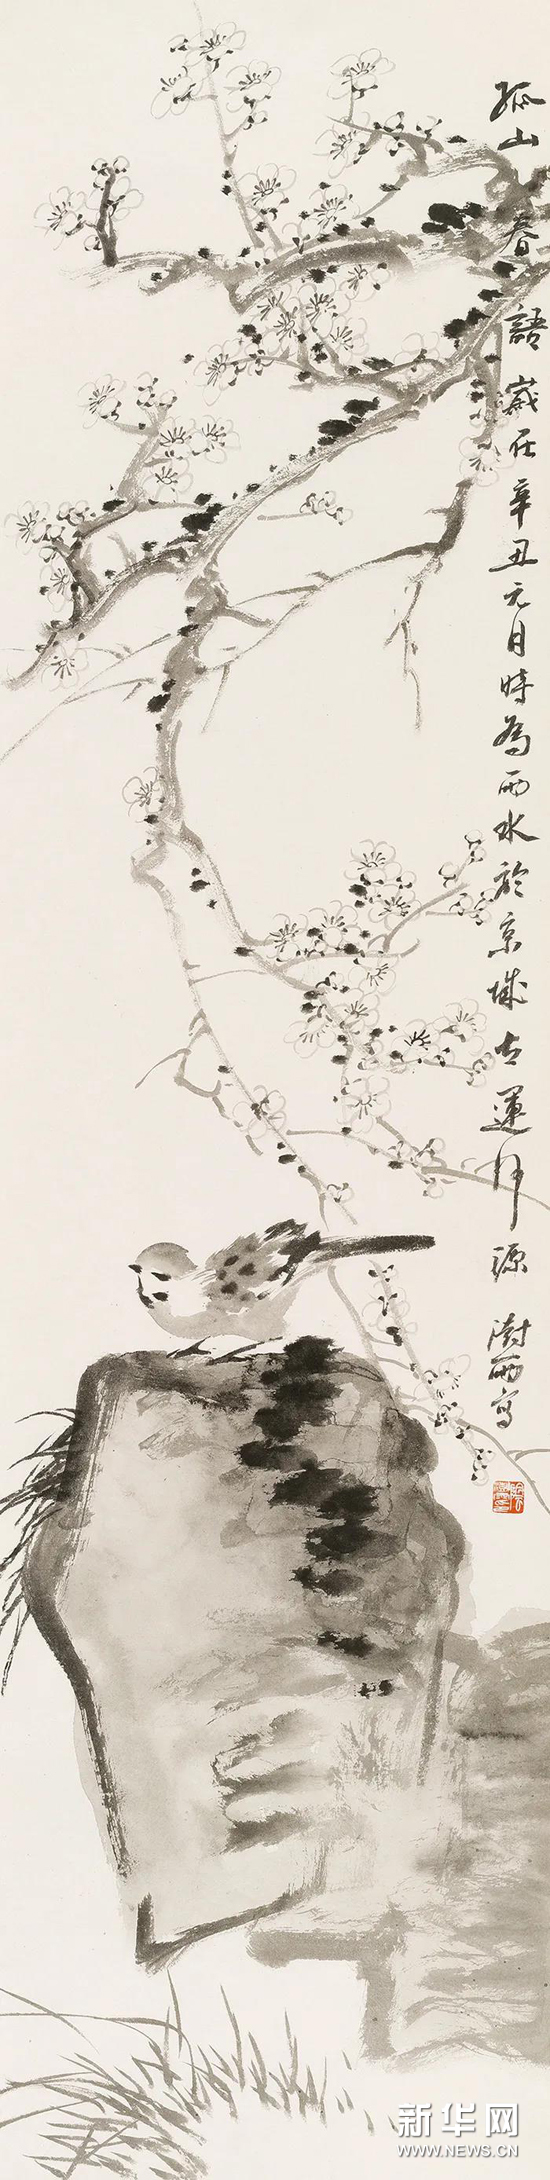 孤山春語歲在辛丑元日時為雨水於京城大運河源 澍雨寫
新华网
WWW.NEWS.CN